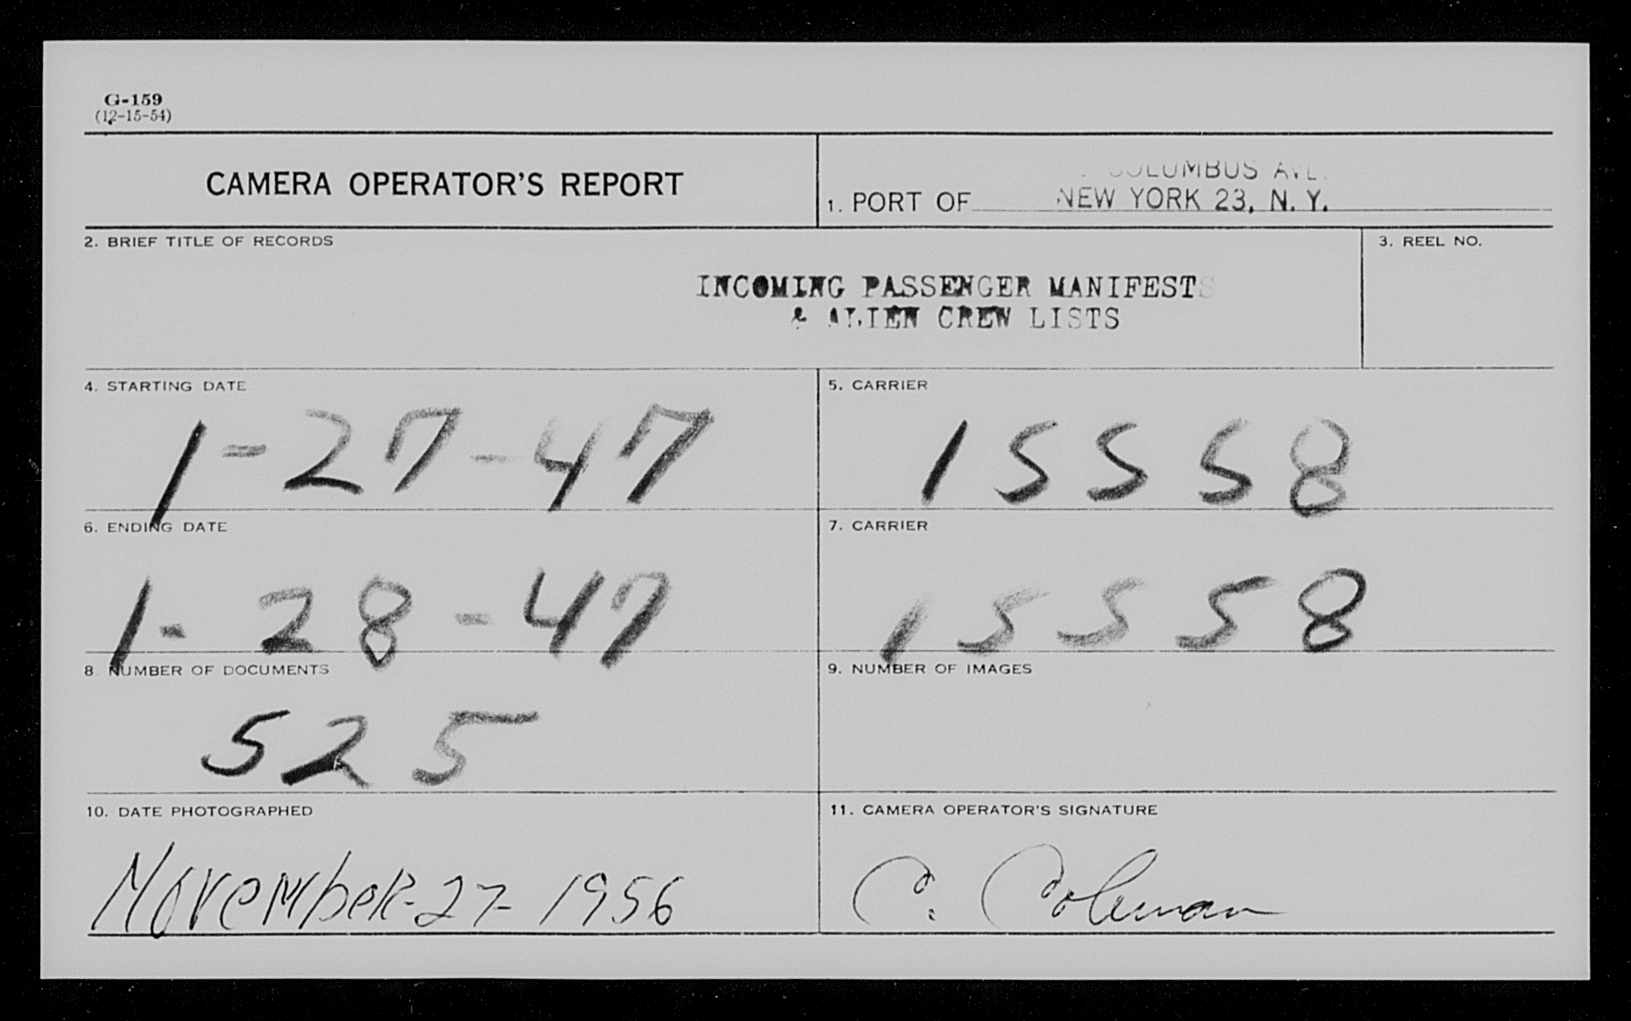 G-159
(12-15-54)
CAMERA OPERATOR'S REPORT
COLUMBUS AVE.
1. PORT OF NEW YORK 23, N. Y.
2. BRIEF TITLE OF RECORDS
3. REEL NO.
INCOMING PASSENGER MANIFESTS
& ALIEN CREW LISTS
4. STARTING DATE
1-27-47
5. CARRIER
15558
6. ENDING DATE
1-28-47
7. CARRIER
15558
8 NUMBER OF DOCUMENTS
525
9. NUMBER OF IMAGES
10. DATE PHOTOGRAPHED
November-27-1956
11. CAMERA OPERATOR'S SIGNATURE
C. Coleman